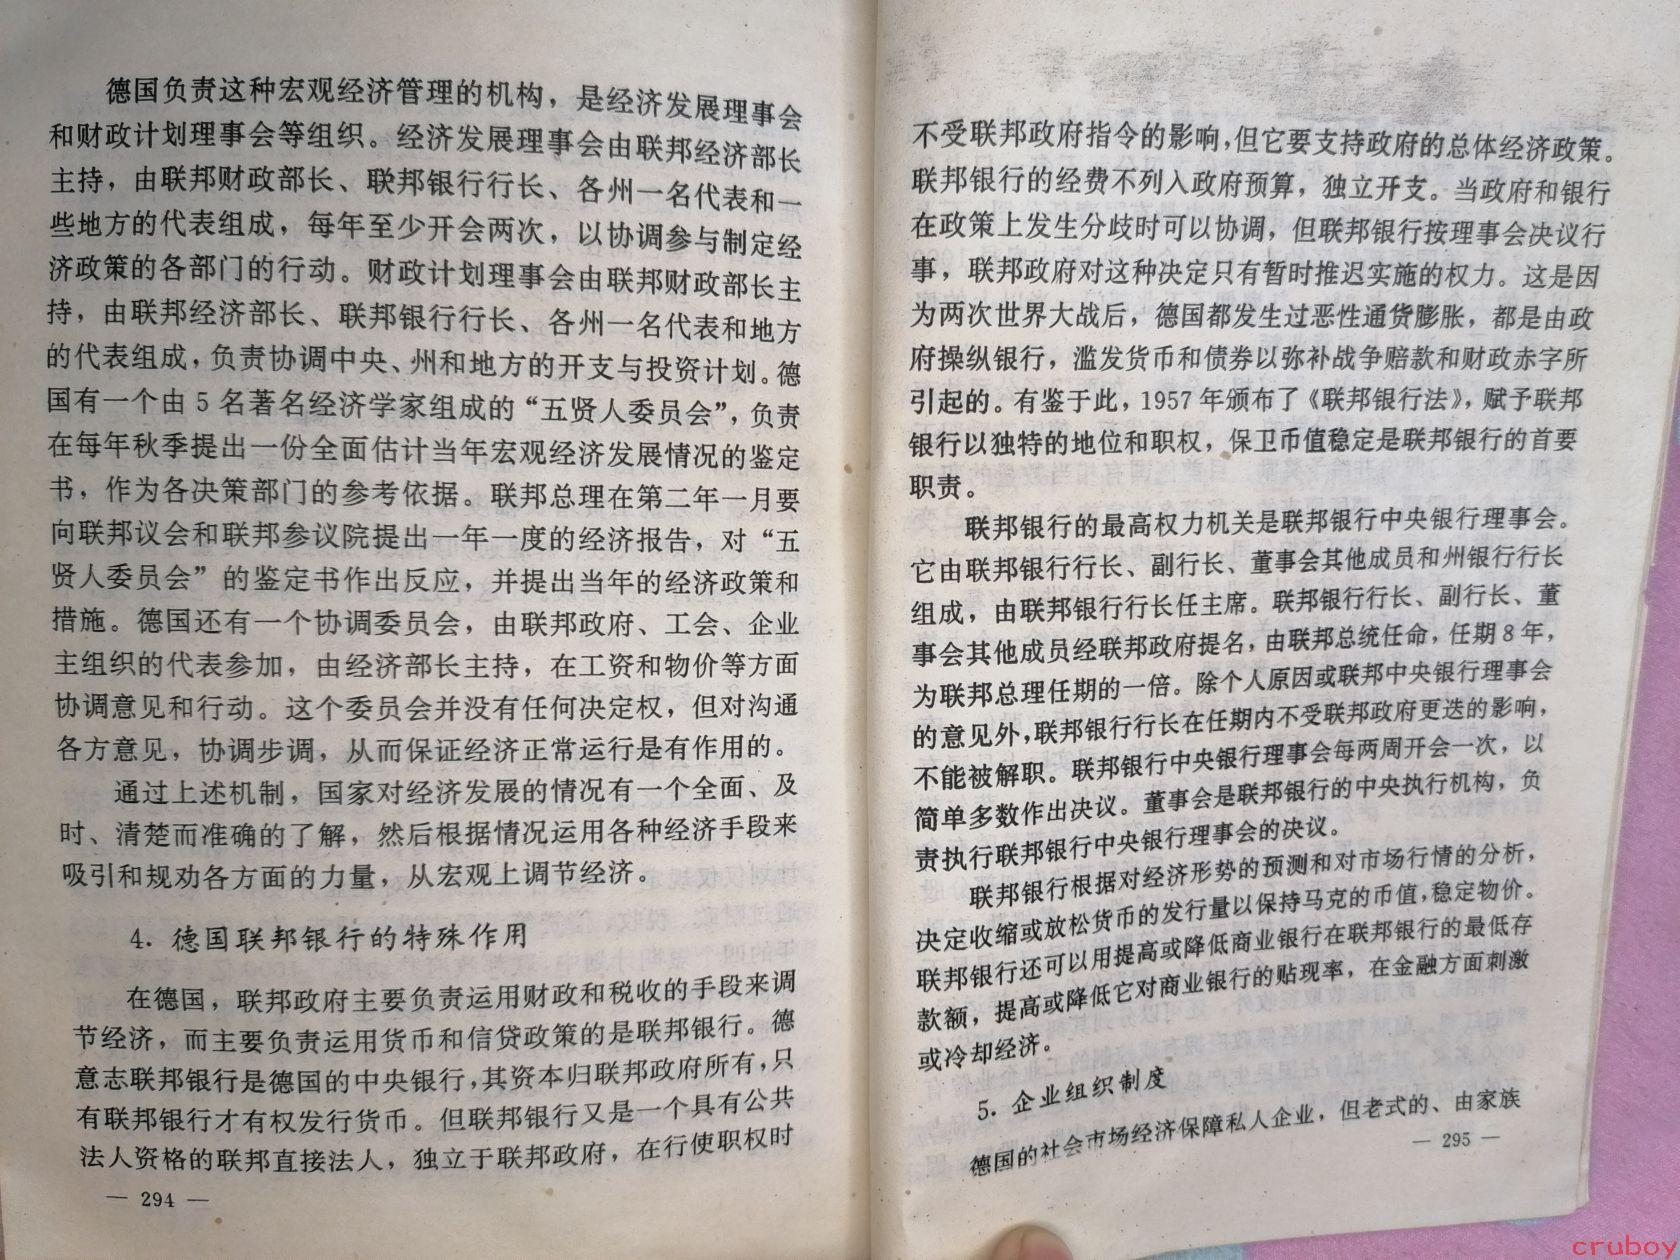 德国负责这种宏观经济管理的机构，是经济发展理事会
和财政计划理事会等组织。经济发展理事会由联邦经济部长
主持，由联邦财政部长、联邦银行行长、各州一名代表和一
些地方的代表组成，每年至少开会两次，以协调参与制定经
济政策的各部门的行动。财政计划理事会由联邦财政部长主
持，由联邦经济部长、联邦银行行长、各州一名代表和地方
的代表组成，负责协调中央、州和地方的开支与投资计划。德
国有一个由 5 名著名经济学家组成的“五贤人委员会”，负责
在每年秋季提出一份全面估计当年宏观经济发展情况的鉴定
书，作为各决策部门的参考依据。联邦总理在第二年一月要
向联邦议会和联邦参议院提出一年一度的经济报告，对“五
贤人委员会”的鉴定书作出反应，并提出当年的经济政策和
措施。德国还有一个协调委员会，由联邦政府、工会、企业
主组织的代表参加，由经济部长主持，在工资和物价等方面
协调意见和行动。这个委员会并没有任何决定权，但对沟通
各方意见，协调步调，从而保证经济正常运行是有作用的。
通过上述机制，国家对经济发展的情况有一个全面、及
时、清楚而准确的了解，然后根据情况运用各种经济手段来
吸引和规劝各方面的力量，从宏观上调节经济。
4. 德国联邦银行的特殊作用
在德国，联邦政府主要负责运用财政和税收的手段来调
节经济，而主要负责运用货币和信贷政策的是联邦银行。德
意志联邦银行是德国的中央银行，其资本归联邦政府所有，只
有联邦银行才有权发行货币。但联邦银行又是一个具有公共
法人资格的联邦直接法人，独立于联邦政府，在行使职权时
— 294 —
不受联邦政府指令的影响，但它要支持政府的总体经济政策。
联邦银行的经费不列入政府预算，独立开支。当政府和银行
在政策上发生分歧时可以协调，但联邦银行按理事会决议行
事，联邦政府对这种决定只有暂时推迟实施的权力。这是因
为两次世界大战后，德国都发生过恶性通货膨胀，都是由政
府操纵银行，滥发货币和债券以弥补战争赔款和财政赤字所
引起的。有鉴于此，1957 年颁布了《联邦银行法》，赋予联邦
银行以独特的地位和职权，保卫币值稳定是联邦银行的首要
职责。
联邦银行的最高权力机关是联邦银行中央银行理事会。
它由联邦银行行长、副行长、董事会其他成员和州银行行长
组成，由联邦银行行长任主席。联邦银行行长、副行长、董
事会其他成员经联邦政府提名，由联邦总统任命，任期 8 年，
为联邦总理任期的一倍。除个人原因或联邦中央银行理事会
的意见外，联邦银行行长在任期内不受联邦政府更迭的影响，
不能被解职。联邦银行中央银行理事会每两周开会一次，以
简单多数作出决议。董事会是联邦银行的中央执行机构，负
责执行联邦银行中央银行理事会的决议。
联邦银行根据对经济形势的预测和对市场行情的分析，
决定收缩或放松货币的发行量以保持马克的币值，稳定物价。
联邦银行还可以用提高或降低商业银行在联邦银行的最低存
款额，提高或降低它对商业银行的贴现率，在金融方面刺激
或冷却经济。
5. 企业组织制度
德国的社会市场经济保障私人企业，但老式的、由家族
— 295 —
cruboy